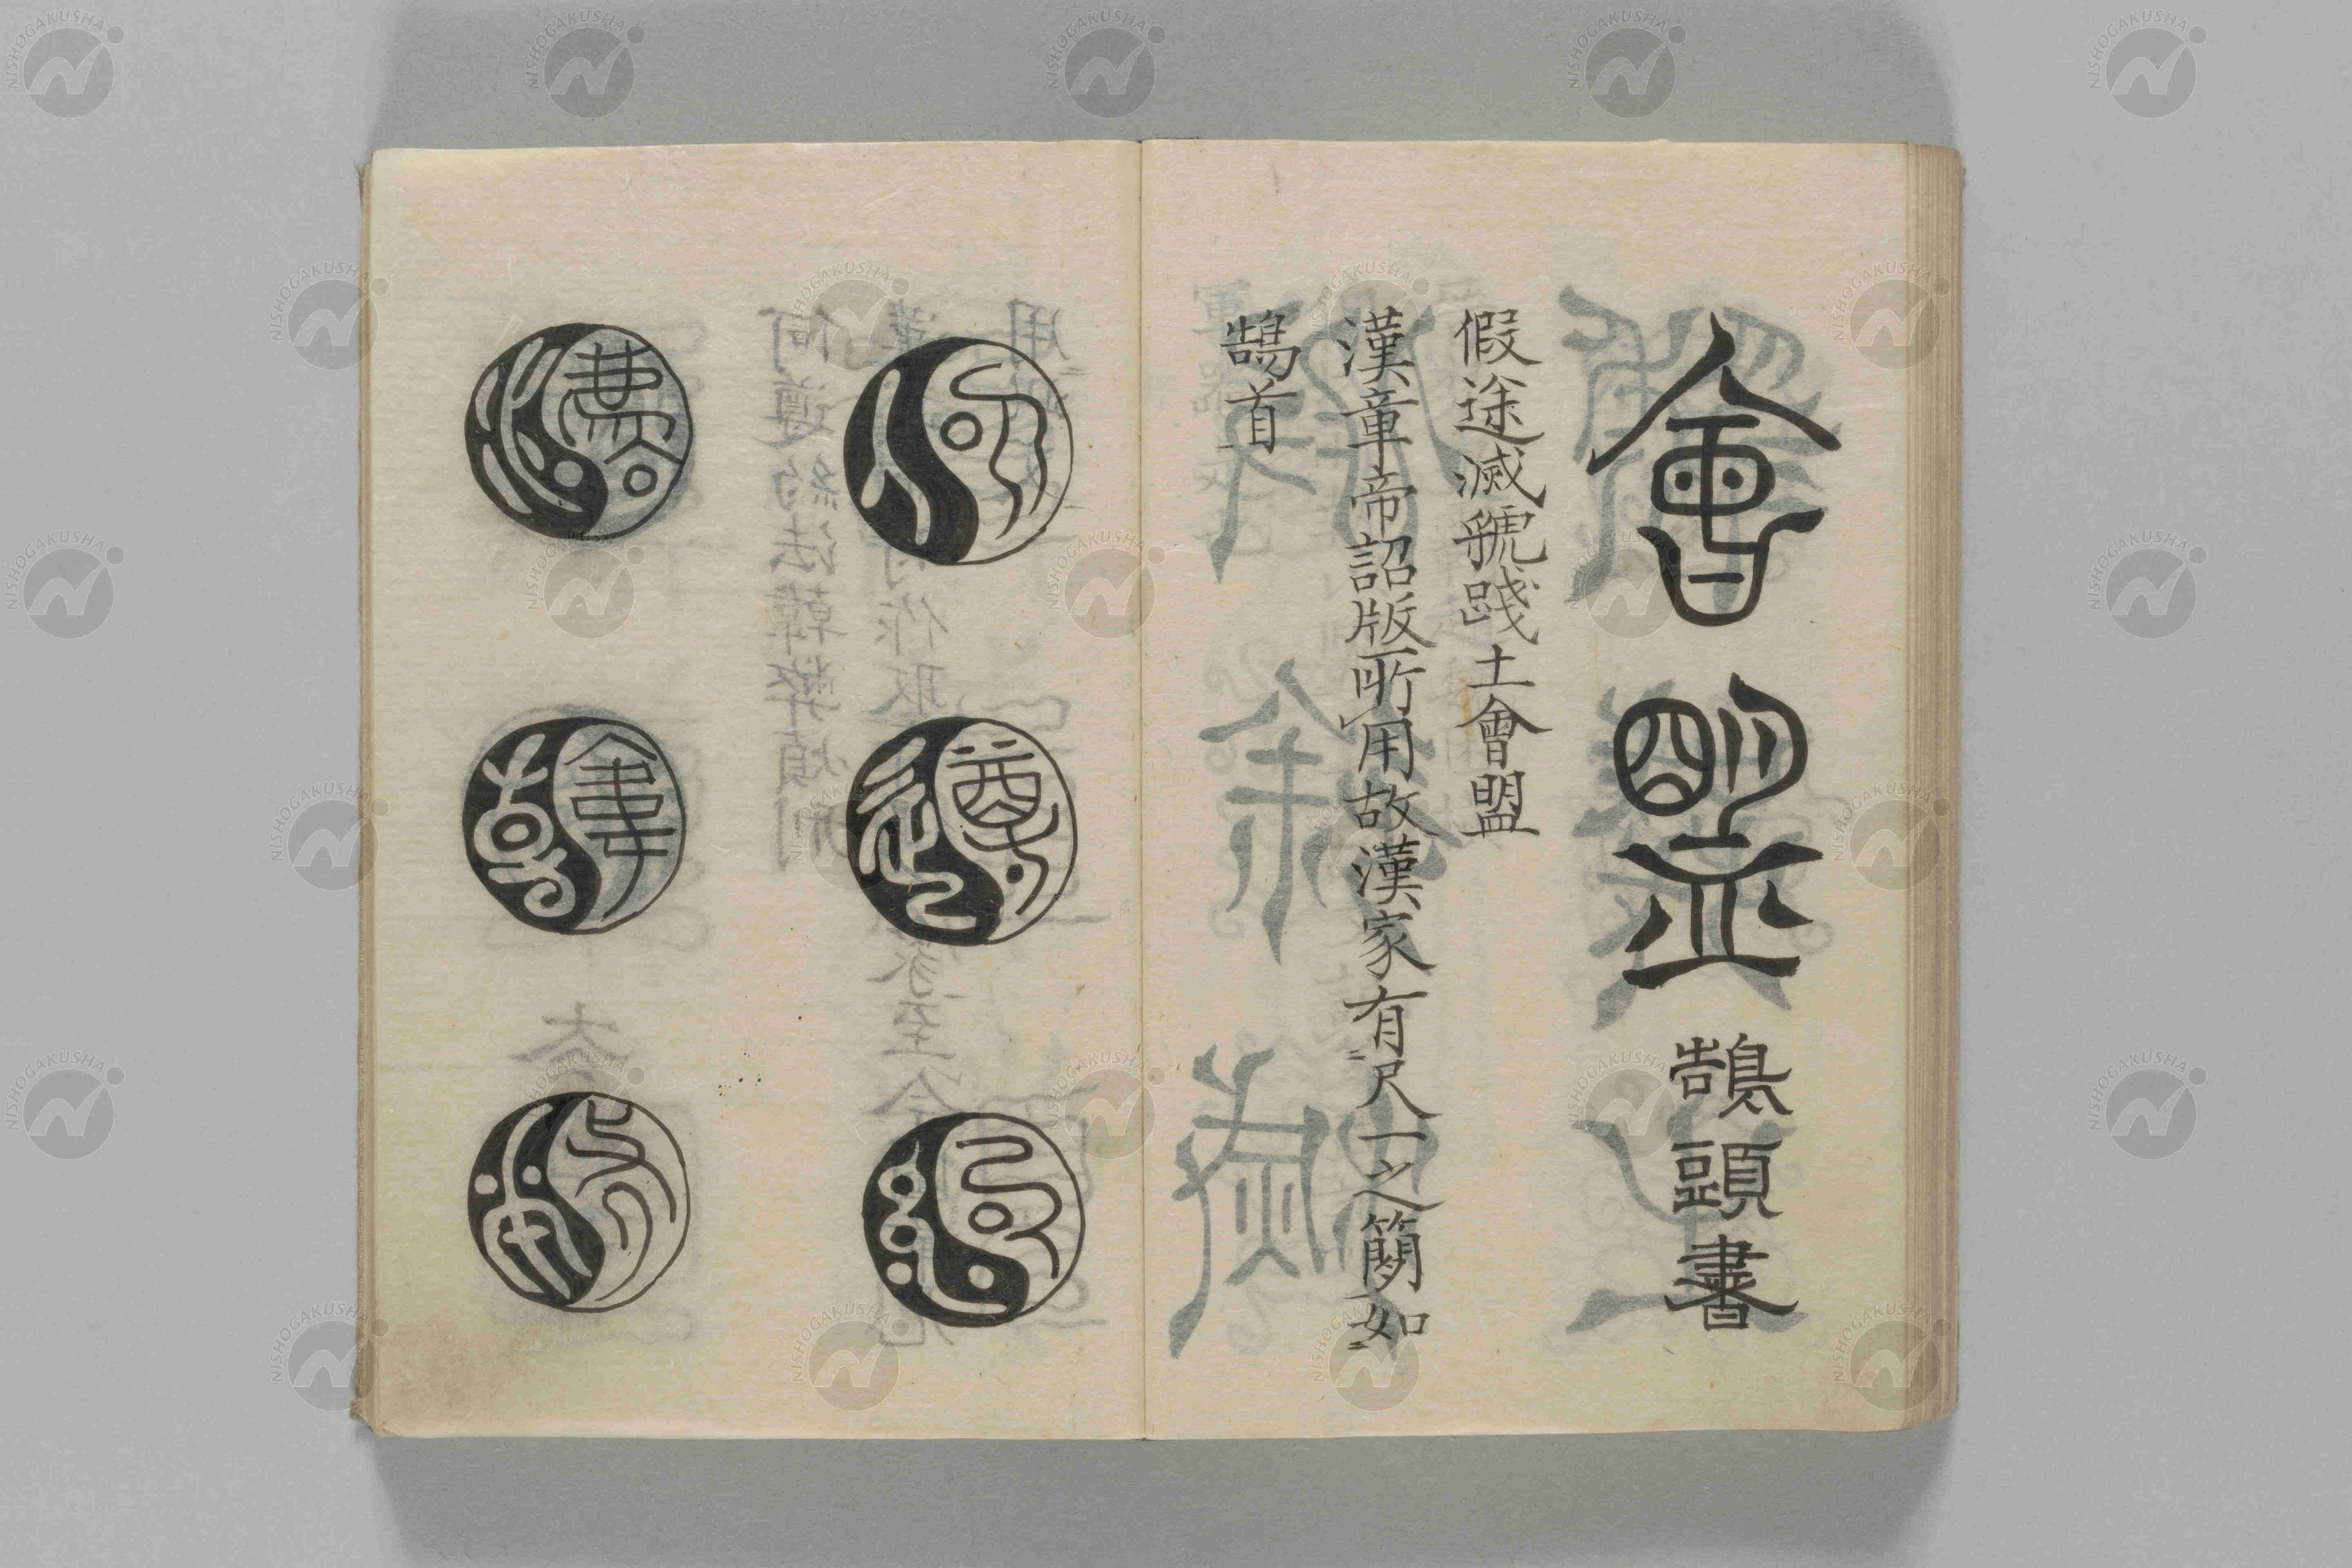 會盟
鵠頭書
假途滅虢踐土會盟
漢章帝詔版所用故漢家有尺一之簡如
鵠首
何
遵
約
法
韓
弊
NISHOGAKUSHA